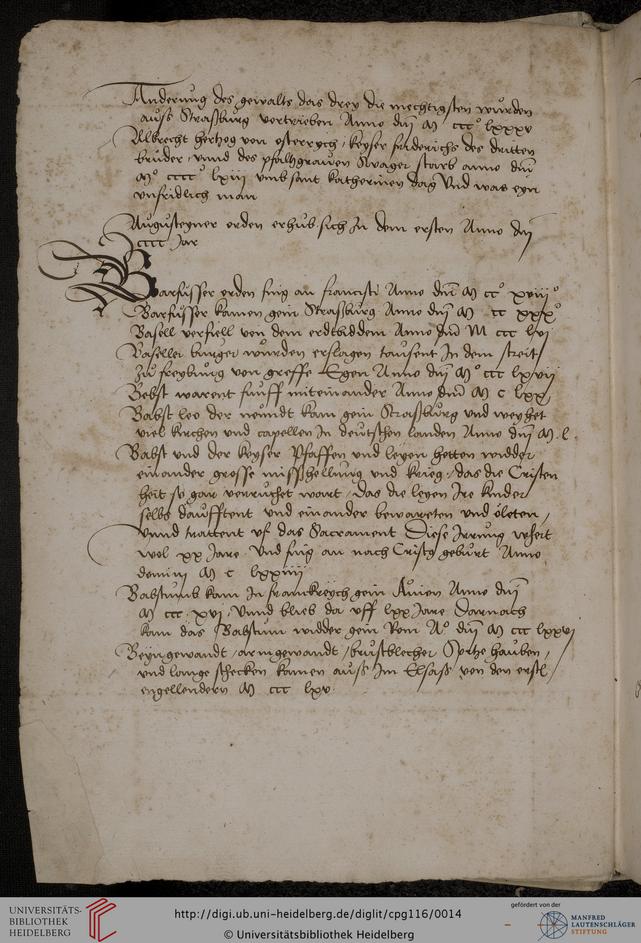 Anderung des gewalts das drey die mechtigsten wurden
auss Straßburg vertrieben Anno dni M ccc° lxxxv
Albrecht hertzog von osterrych / keyser friderichs des dritten
bruder / vnnd des pfaltzgrauen Swager starb anno dni
M° cccc° lxiii vmb sant katherinen dag Vnd was eyn
vnfridlich man
Augusteyner orden erhub sich In dem ersten Anno dni
cccc Jar
Barfusser orden fing an francisci Anno dni M cc° xviii°
Barfusser kamen gein Straßburg Anno dni M cc xxx°
Basell verfiell von dem erdtbiddem Anno dni M ccc lvi
Baseller burger wurden erslagen tausent In dem streit
zu freyburg von greffe Egen Anno dni M° ccc lxvii
Bebst warent funff miteinander Anno dni M c lxx
Babst leo der neundt kam gein Straßburg vnd weyhet
viel kirchen vnd capellen In deutschen landen Anno dni M. l.
Babst vnd der keyser Pfaffen vnd leyen hetten widder
einander grosse misshellung vnd krieg / das die Cristen
heit so gar verruchet wart / Das die leyen Ire kinder
selbs daufftent vnd einander bewareten vnd oleten /
vnnd trattent vf das Sacrament Diese Irrung wert
wol xx Jare Vnd fing an nach Cristy geburt Anno
domini M c lxxiiii
Babstumb kam In franckreych gein Auion Anno dni
M ccc xvi / Vnnd bleib da vff lxx Jare Darnach
kam das Babstum widder gein Rom A° dni M ccc lxxvi
Beyngewandt / armgewandt / brustblecher Spitze hauben /
vnd lange schecken kamen auss Im Elsass von den erstl
engellendern M ccc lxv
UNIVERSITÄTS-
BIBLIOTHEK
HEIDELBERG
http://digi.ub.uni-heidelberg.de/diglit/cpg116/0014
© Universitätsbibliothek Heidelberg
gefördert von der
MANFRED
LAUTENSCHLÄGER
STIFTUNG